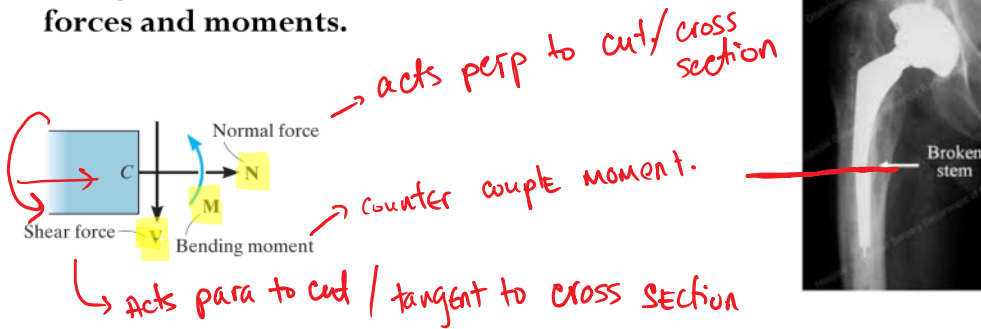 forces and moments.
acts perp to cut/cross
section
Normal force
C
N
M
counter couple moment.
Broken
stem
Shear force
V
Bending moment
Acts para to cut / tangent to cross section